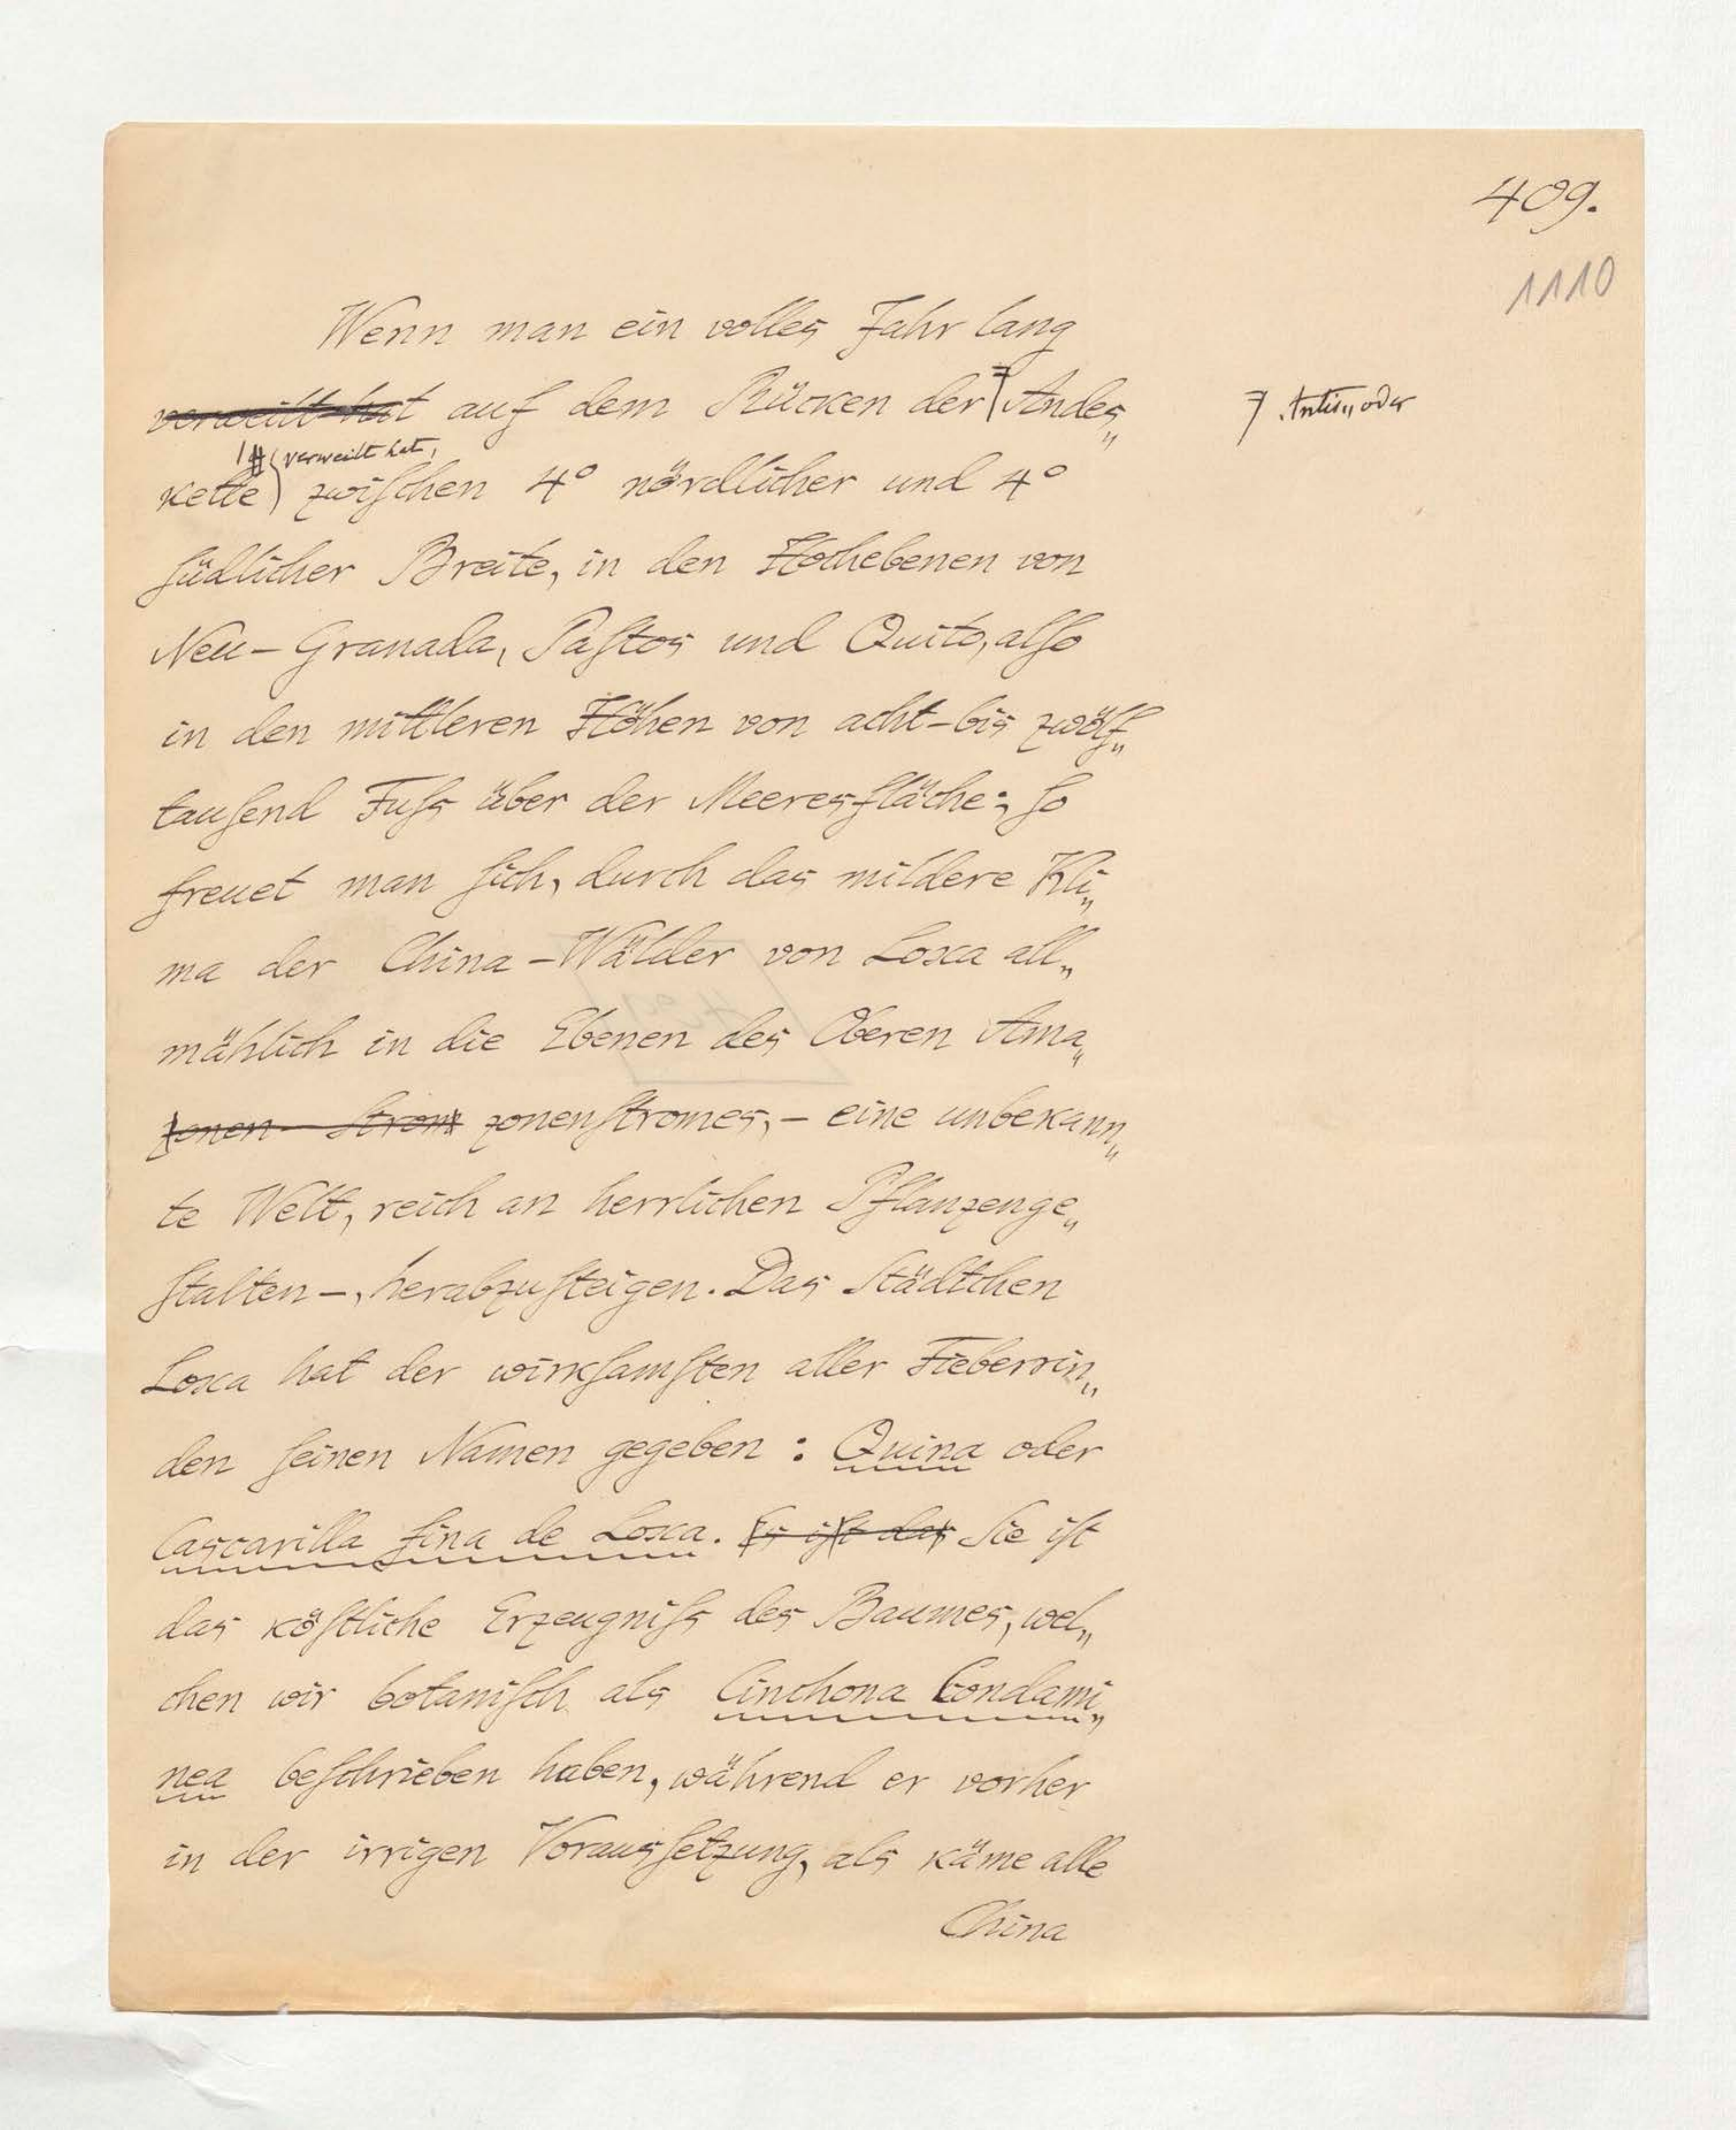 409.
1110
Wenn man ein volles Jahr lang
verweilt hat auf dem Rücken der Andes„
Antis„ oder
verweilt hat,
kette zwiſchen 4° nördlicher und 4°
ſüdlicher Breite, in den Hochebenen von
Neu-Granada, Paſtos und Quito, alſo
in den mittleren Höhen von acht- bis zwölf„
tauſend Fuſs über der Meeresfläche: ſo
freuet man ſich, durch das mildere Kli„
ma der China-Wälder von Loxa all„
mählich in die Ebenen des Oberen Ama„
zonen-Strom zonenſtromes, – eine unbekann„
te Welt, reich an herrlichen Pflanzenge„
ſtalten –, herabzuſteigen. Das Städtchen
Loxa hat der wirkſamſten aller Fieberrin„
den ſeinen Namen gegeben: Quina oder
Cascarilla fina de Loxa. Es iſt das Sie iſt
das köſtliche Erzeugniſs des Baumes, wel„
chen wir botaniſch als Cinchona Condami„
nea beſchrieben haben, während er vorher
in der irrigen Vorausſetzung, als käme alle
China